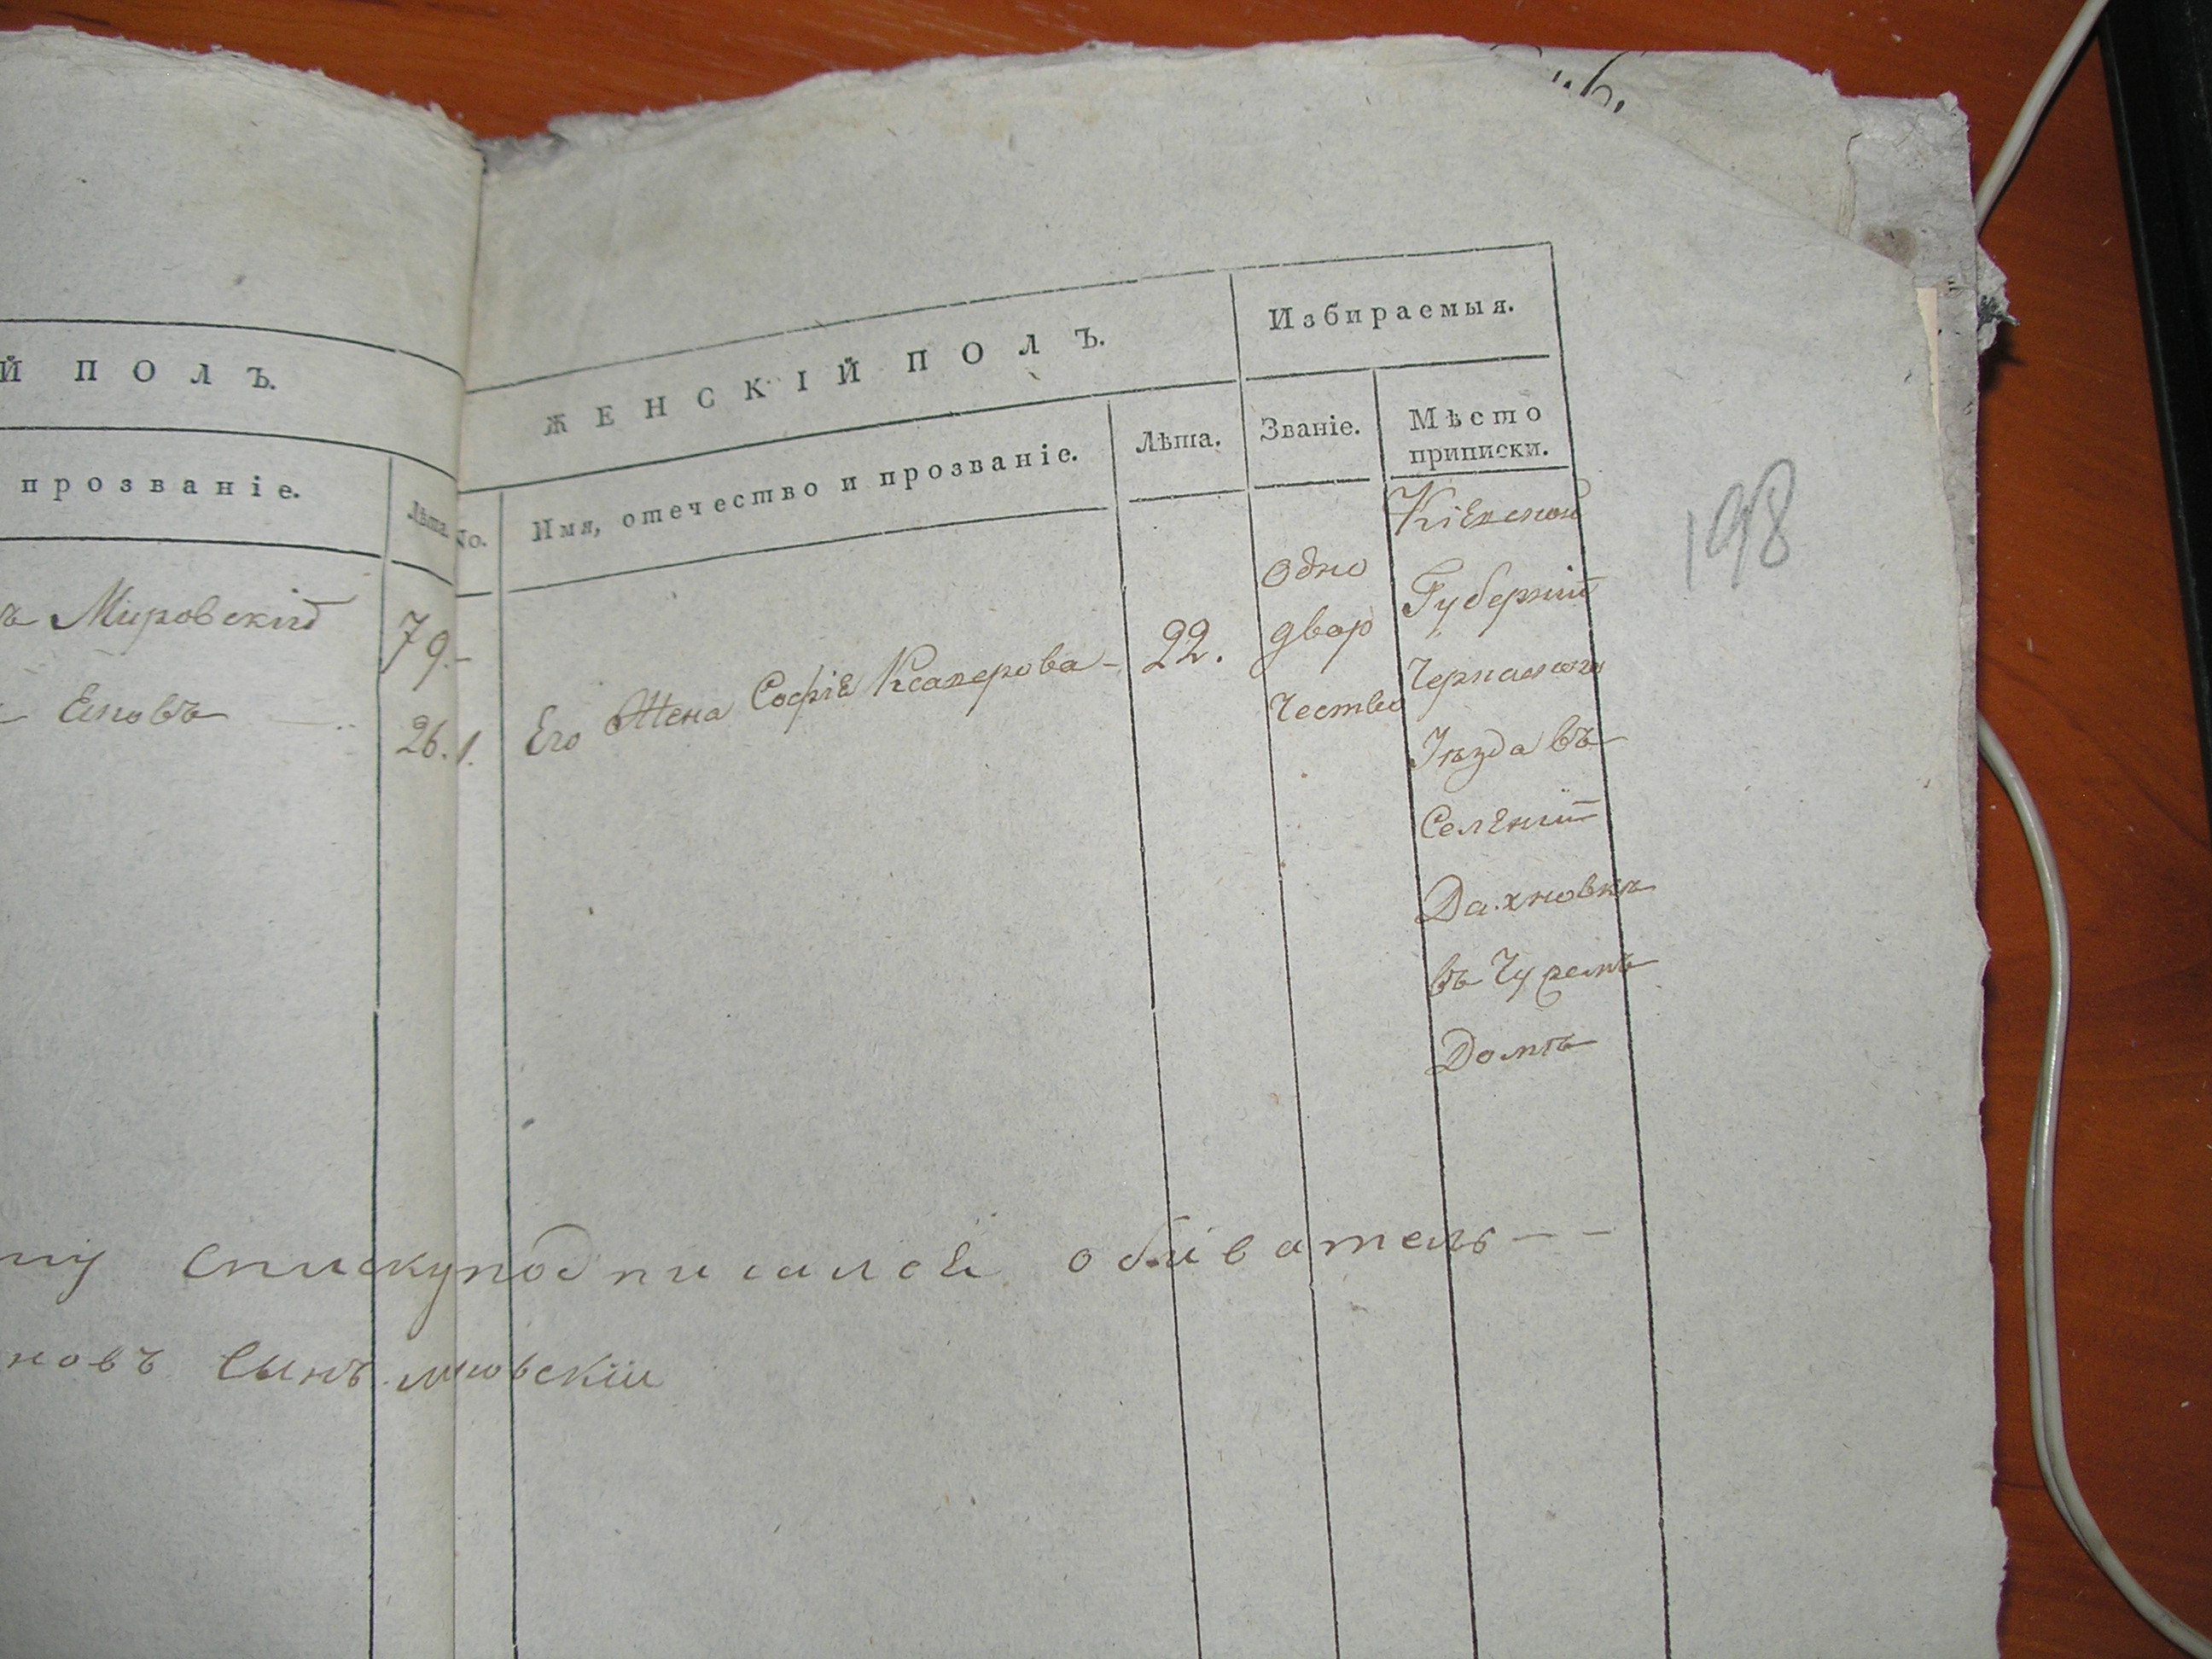 Й ПОЛЪ.
прозваніе.
Лѣта.
ъ Мировскій
79.-
Яновъ
26.
ЖЕНСКІЙ ПОЛЪ.
Избираемыя.
No.
Имя, отечество и прозваніе.
Лѣта.
Званіе.
Мѣсто
приписки.
198
1. Его Жена Софія Ксаверова - 22.
Одно
двор
чество
Кіевской
Губерніи
Черкаского
Уѣзда въ
Селеніи
Дахновкѣ
въ Чужемъ
Домѣ
списку подписался обиватель - -
новъ сынъ